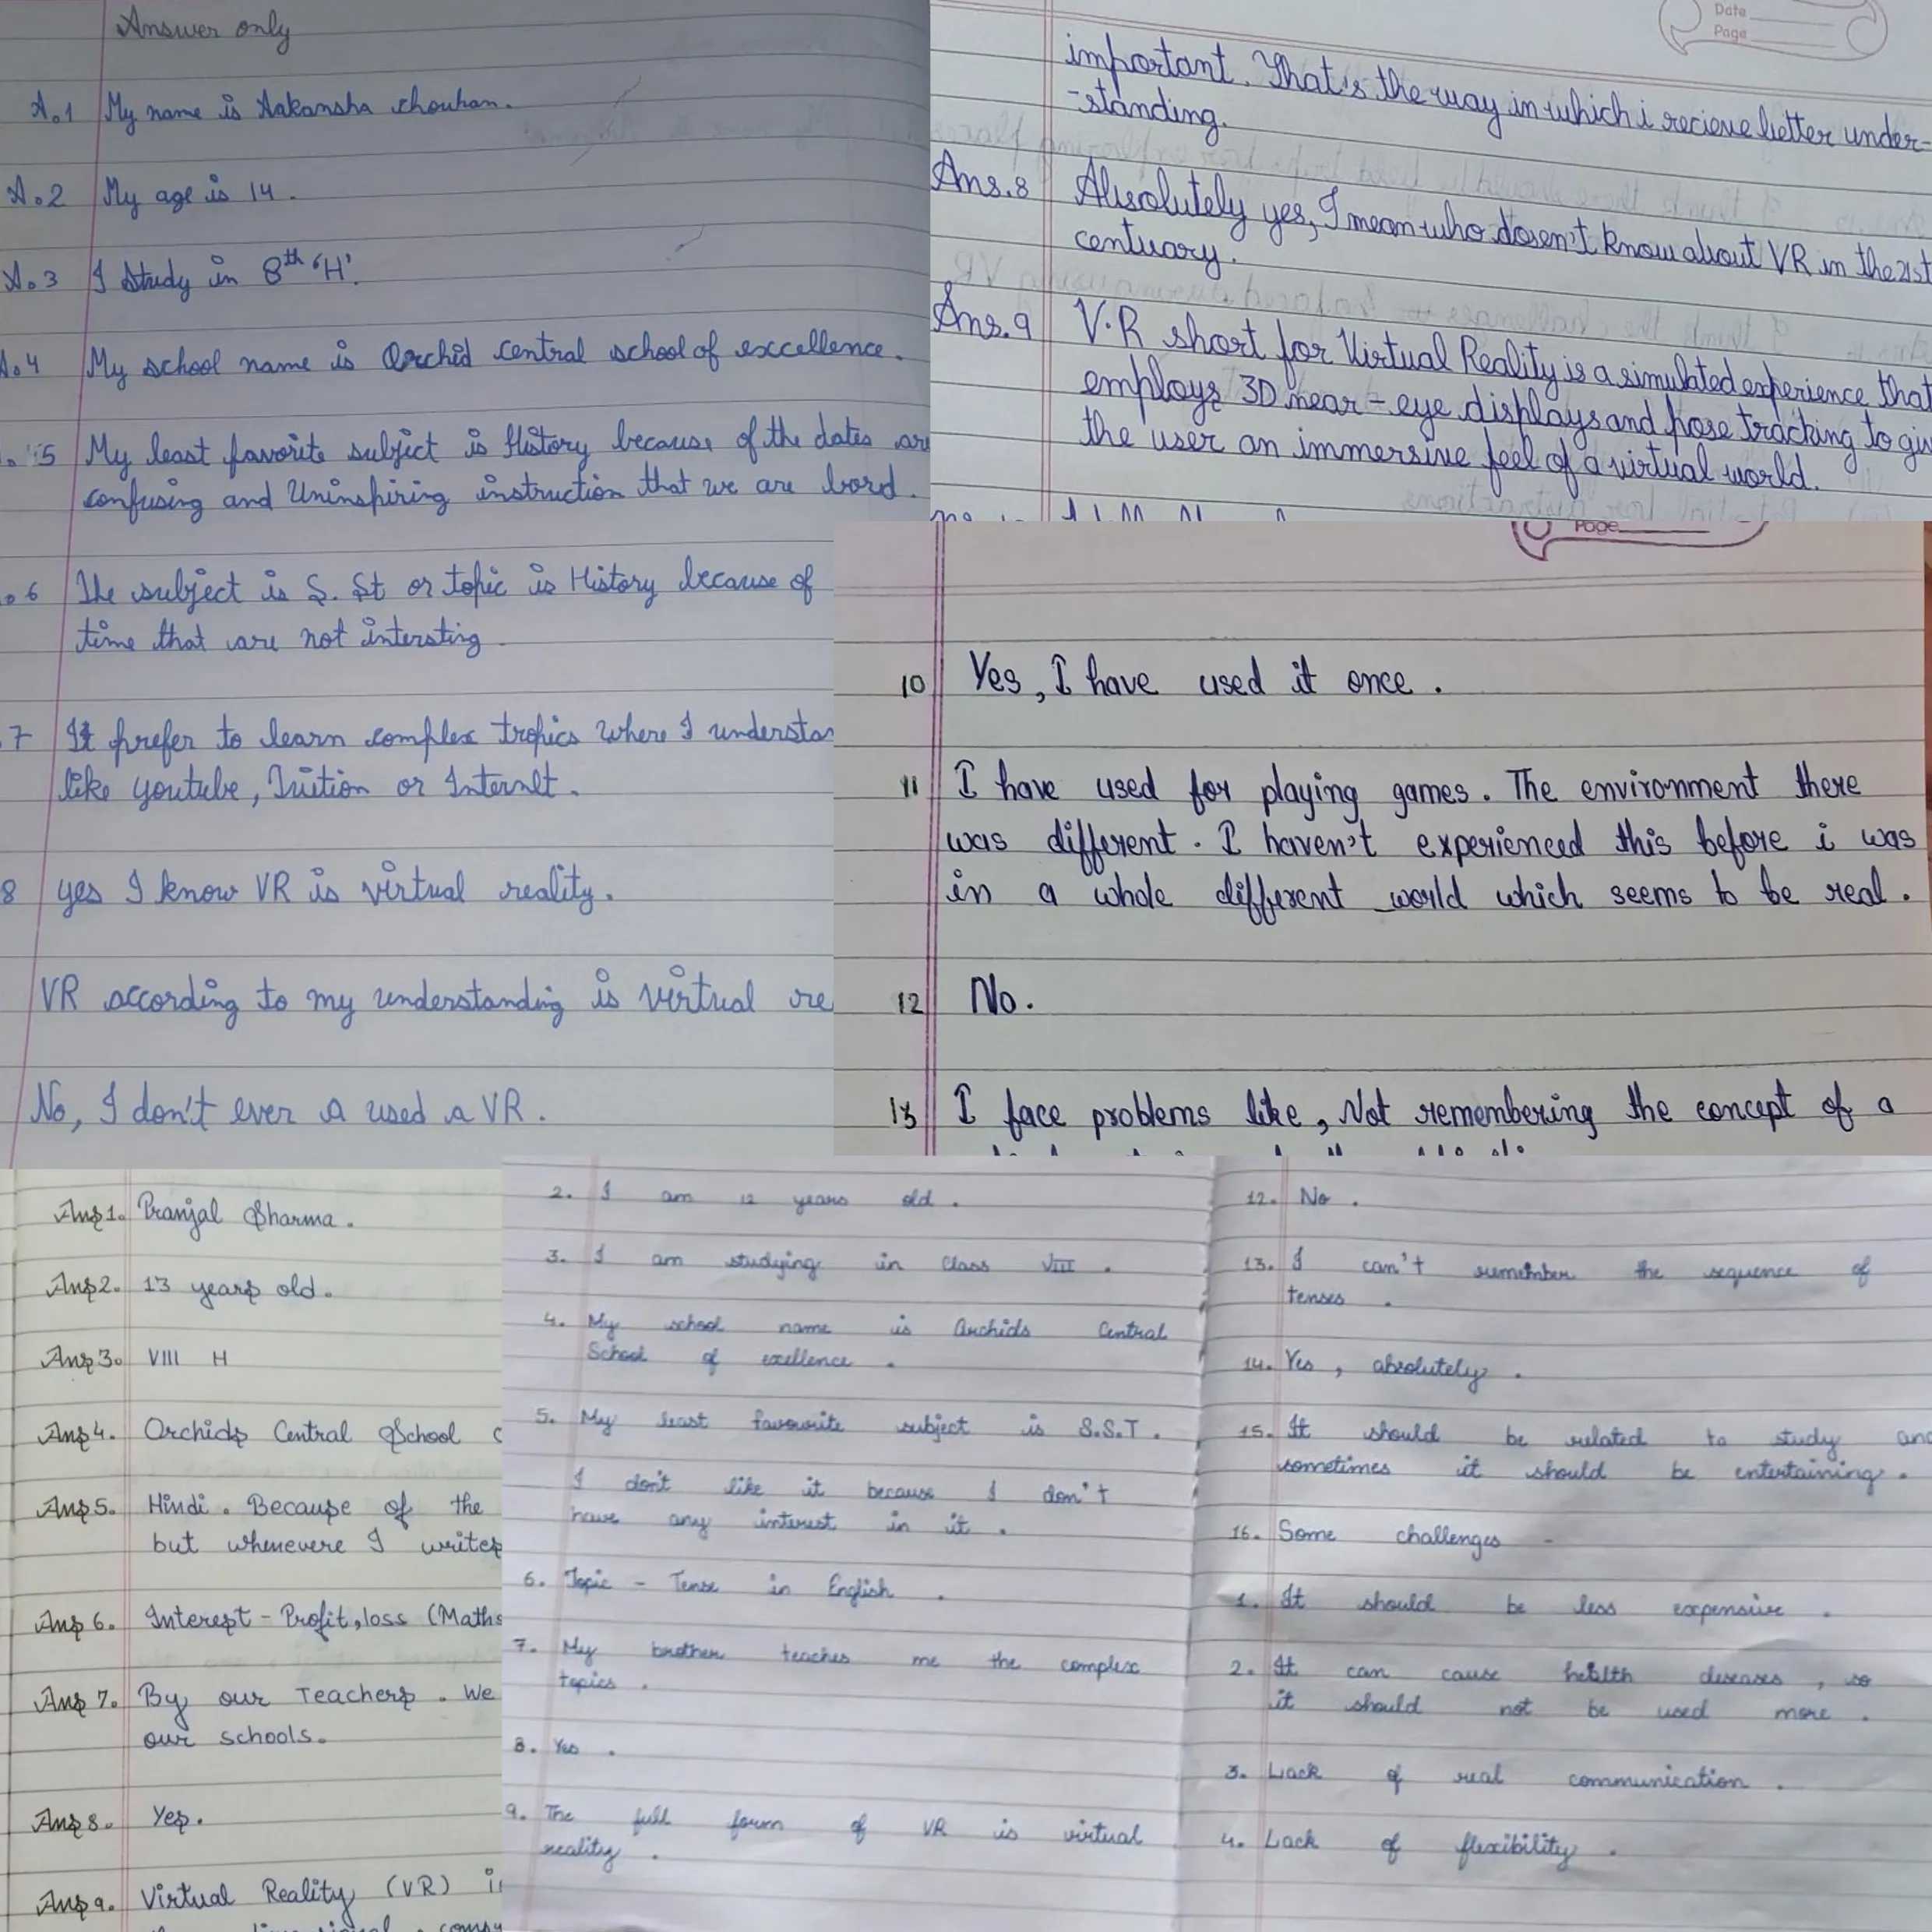 Answer only
A.1 My name is Aakansha chouhan.
A.2 My age is 14.
A.3 I Study in 8th 'H'.
A.4 My school name is Orchid central school of exccellence.
5 My least favorite subject is History because of the dates are
confusing and Uninspiring instruction that we are bord.
6 The subject is S. St or topic is History because of
time that are not intersting.
7 It prefer to learn complex tropics where I understan
like youtube, Tuition or Internt.
8 yes I know VR is virtual reality.
VR according to my understanding is virtual re
No, I don't ever a used a VR.
Date
Page
important. That's the way in which i recieve better under-
-standing.
Ans.8 Absolutely yes, I mean who dosen't know about VR in the 21st
centuary.
Ans.9 V.R short for Virtual Reality is a simulated experience that
employs 3D near-eye displays and pose tracking to giv
the user an immersive feel of a virtual world.
Page
10 Yes, I have used it once.
11 I have used for playing games. The environment there
was different. I haven't experienced this before i was
in a whole different world which seems to be real.
12 No.
13 I face problems like, Not remembering the concept of a
Ans1. Pranjal Sharma.
Ans2. 13 years old.
Ans3. VIII H
Ans4. Orchids Central School
Ans5. Hindi. Because of the
but whenevere I writes
Ans6. Interest - Profit, loss (Maths
Ans7. By our Teachers. We
our schools.
Ans8. Yes.
Ans9. Virtual Reality (VR) i
2. I am 12 years old.
3. I am studying in class VIII.
4. My school name is Orchids Central
School of exellence.
5. My least favourite subject is S.S.T.
I don't like it because I don't
have any interest in it.
6. Topic - Tense in English.
7. My brother teaches me the complex
topics.
8. Yes.
9. The full form of VR is virtual
reality.
12. No.
13. I can't remember the sequence of
tenses.
14. Yes, absolutely.
15. It should be related to study and
sometimes it should be entertaining.
16. Some challenges -
1. It should be less expensive.
2. It can cause health diseases, so
it should not be used more.
3. Lack of real communication.
4. Lack of flexibility.